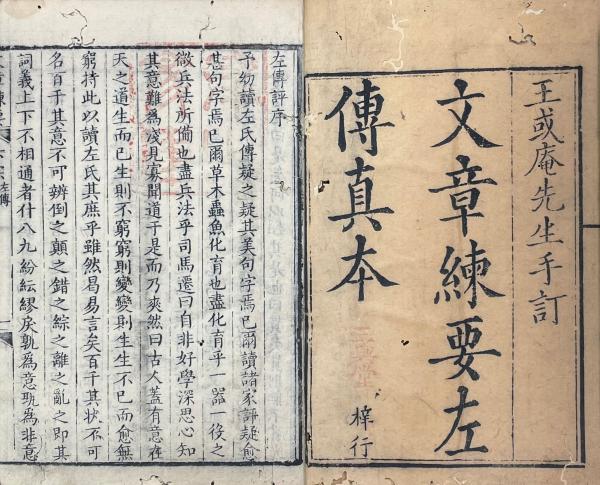 王或庵先生手訂
文章練要左
傳真本
梓行
左傳評序
予幼讀左氏傳疑之疑其美句字焉已爾讀諸家評疑愈
甚句字焉已爾草木蟲魚化育也盡化育乎一器一役之
微兵法所備也盡兵法乎司馬遷曰自非好學深思心知
其意難為淺見寡聞道于是而乃爽然曰古人蓋有意在
天之道生而已生則不窮窮則變變則生生不已而愈無
窮持此以讀左氏其庶乎雖然曷易言矣百千其狀不可
名百千其意不可辨倒之顛之錯之綜之離之亂之即其
詞義上下不相通者什八九紛紜繆戾孰為意孰為非意
左傳